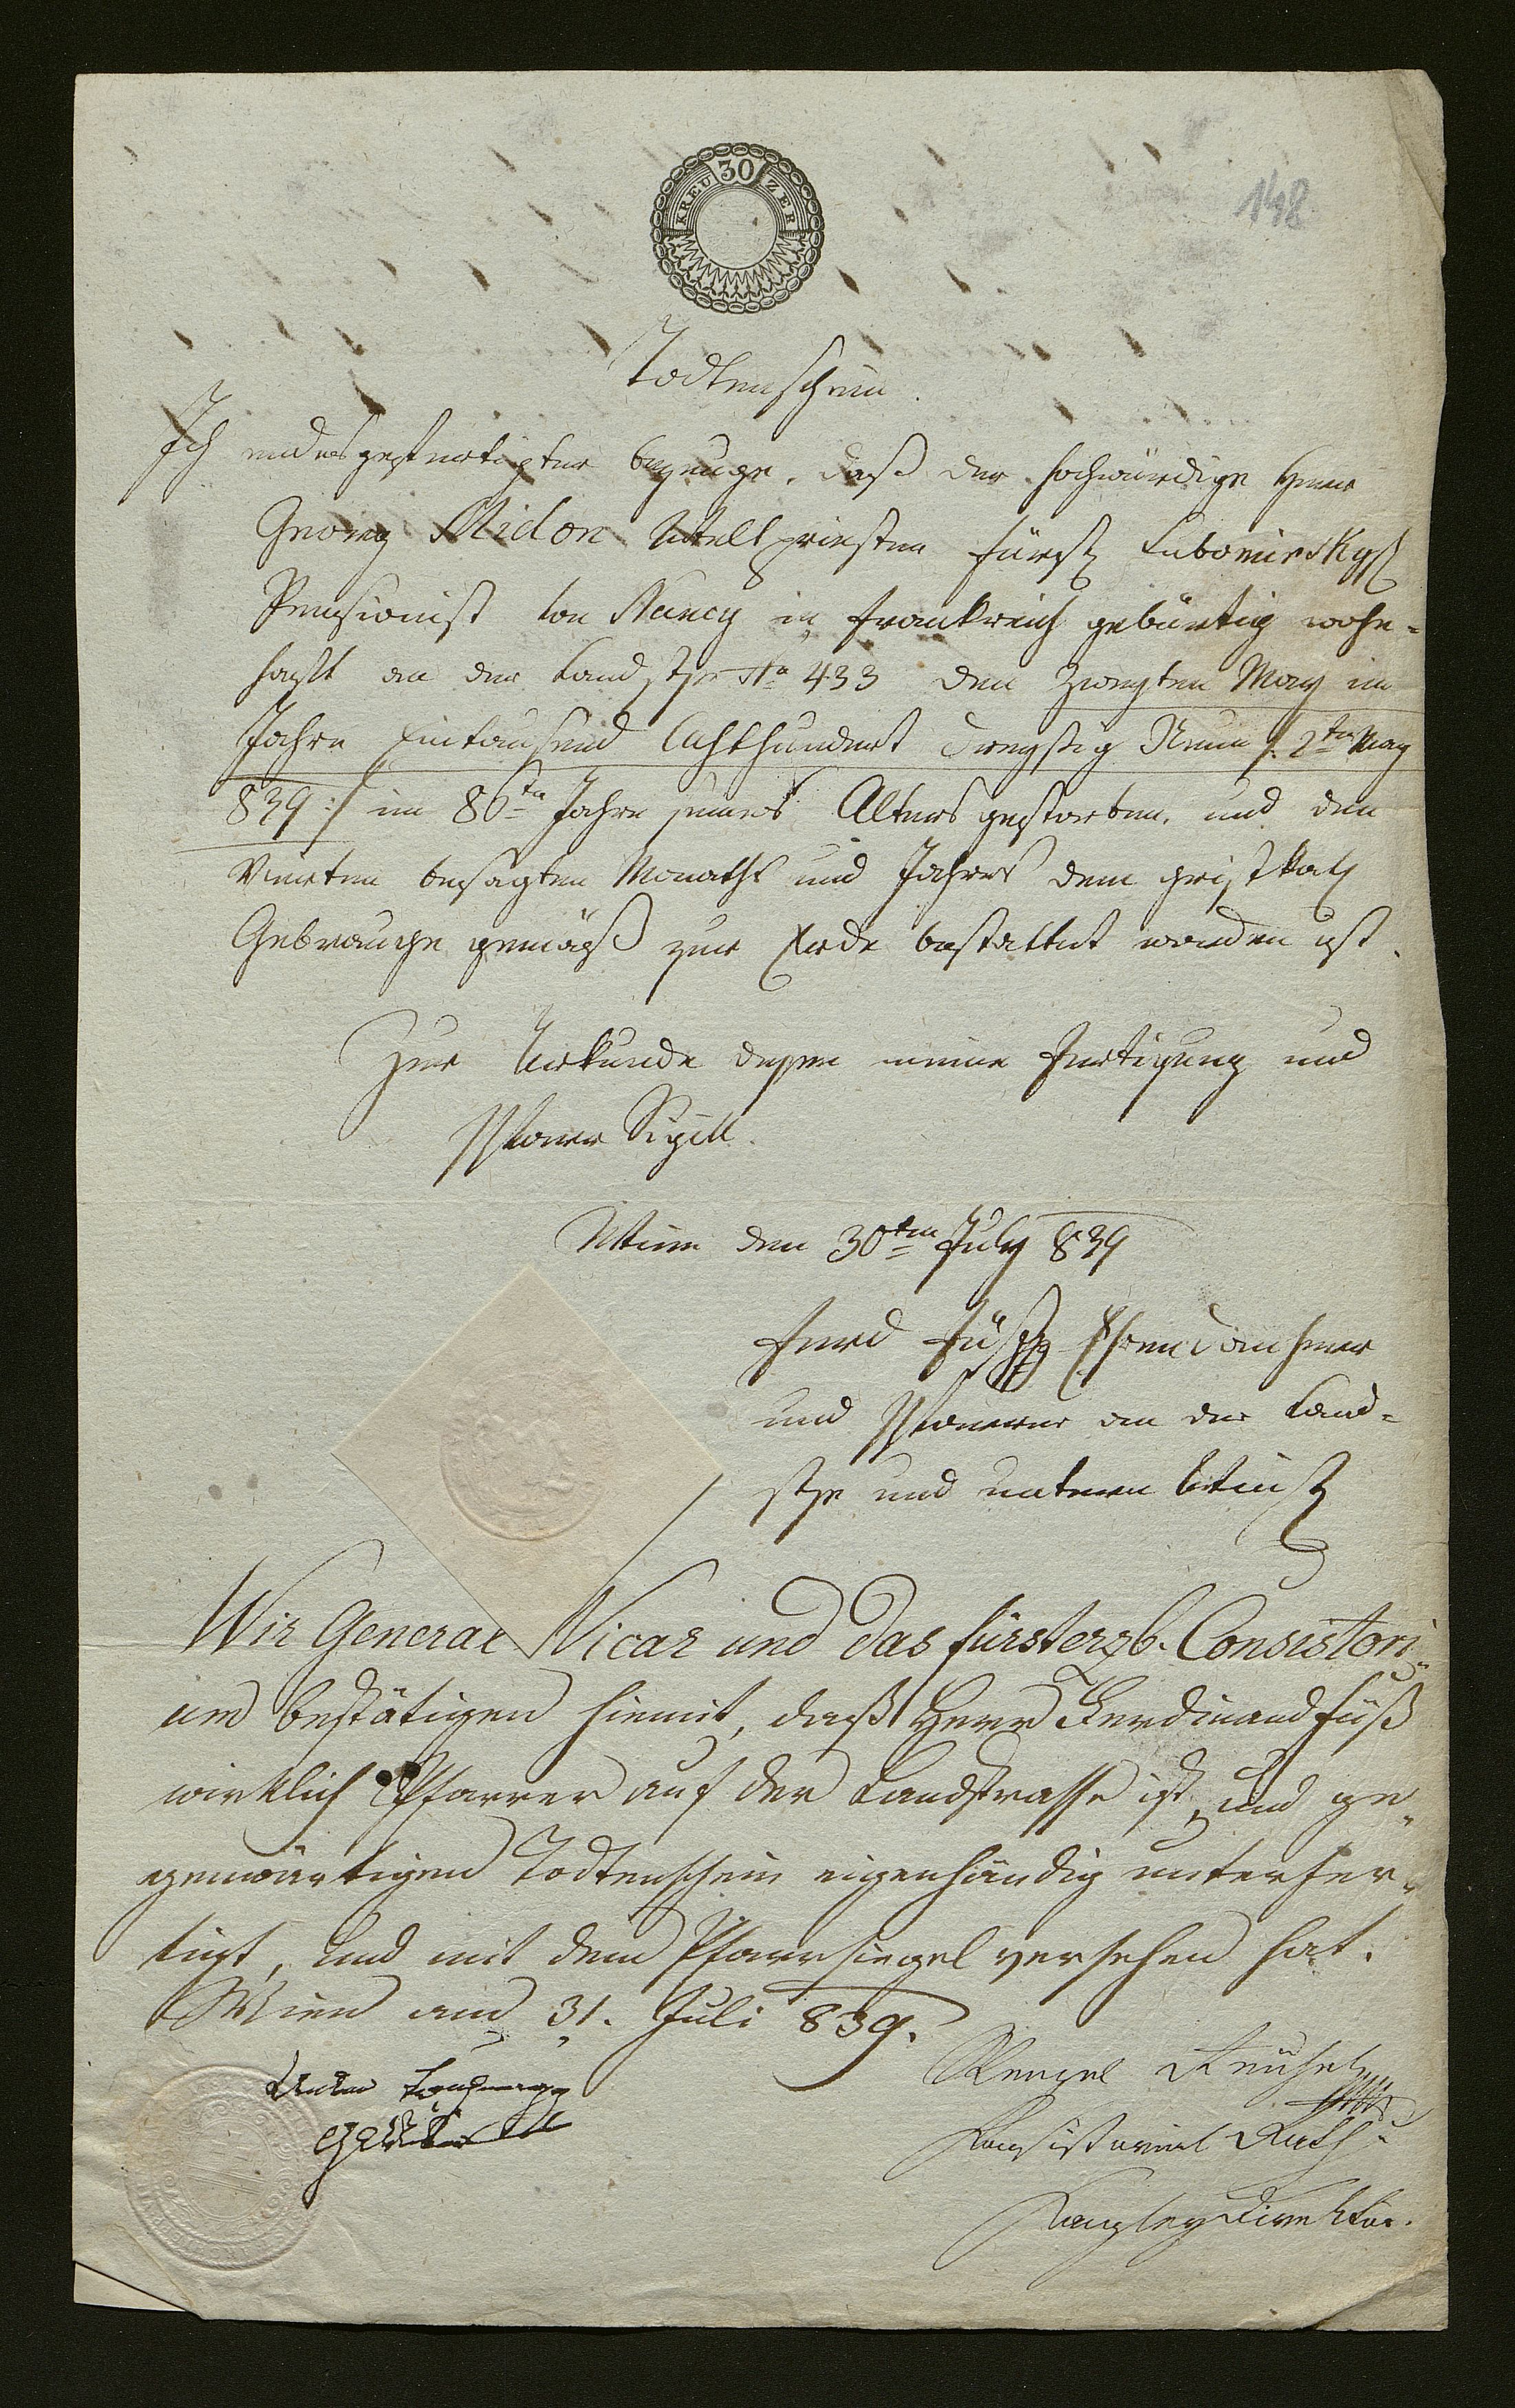 30
KREUZER
148
Todtenschein.
Ich endesgefertigter bezeuge, daß der hochwürdige Herr
Georg Midon Weltpriester fürstl Lubomirskysch
Pensionist von Nancy in Frankreich gebürtig wohn-
haft an der Landstße No 433 den Zweyten May im
Jahre Eintausend Achthundert Dreyßig Neun /: 2ten May
839 :/ im 86ten Jahre seines Alters gestorben, und den
Vierten besagten Monaths und Jahres dem christkath
Gebrauche gemäß zur Erde bestattet worden ist.
Zur Urkunde dessen meine Fertigung und
Pfarr Sigill.
Wien den 30ten July 839
Ferd Füßz Ehrendomherr
und Pfarrer an der Land-
stße und unteren
Wir General Vicar und das fürsterzb. Consistori-
um bestätigen hiemit, daß Herr Ferdinand Füß
wirklich Pfarrer auf der Landstrasse ist, und ge-
genwärtigen Todtenschein eigenhändig unterfer-
tigt, und mit dem Pfarrsiegel versehen hat.
Wien am 31. Juli 839.
Anton
Wenzel
Konsistorial Rath u
Kanzley Direktor.